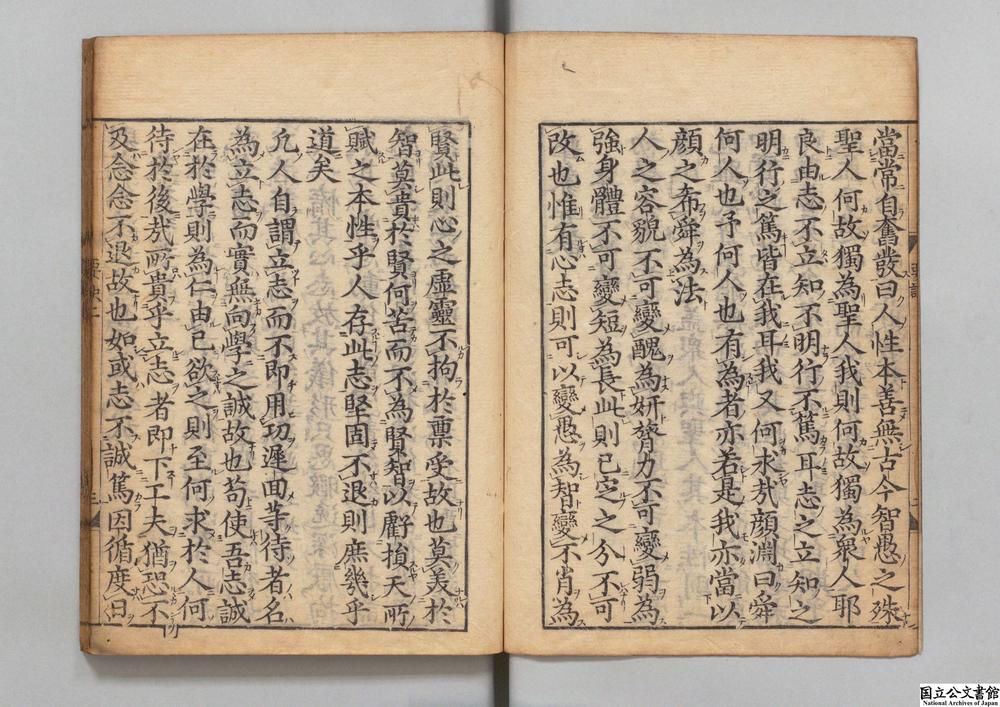 當常自奮發曰人性本善無古今智愚之殊
聖人何故獨爲聖人我則何故獨爲衆人耶
良由志不立知不明行不篤耳志之立知之
明行之篤皆在我耳我又何求哉顔淵曰舜
何人也予何人也有爲者亦若是我亦當以
顔之希舜爲法
人之容貌不可變醜爲妍膂力不可變弱爲
強身體不可變短爲長此則已定之分不可
改也惟有心志則可以變愚爲智變不肖爲
賢此則心之虛靈不拘於稟受故也莫美於
智莫貴於賢何苦而不爲賢智以虧損天所
賦之本性乎人存此志堅固不退則庶幾乎
道矣
凢人自謂立志而不即用功遲回等待者名
為立志而實無向學之誠故也苟使吾志誠
在於學則為仁由己欲之則至何求於人何
待於後㢤所貴乎立志者即下工夫猶恐不
及念念不退故也如或志不誠篤因循度日
国立公文書館
National Archives of Japan